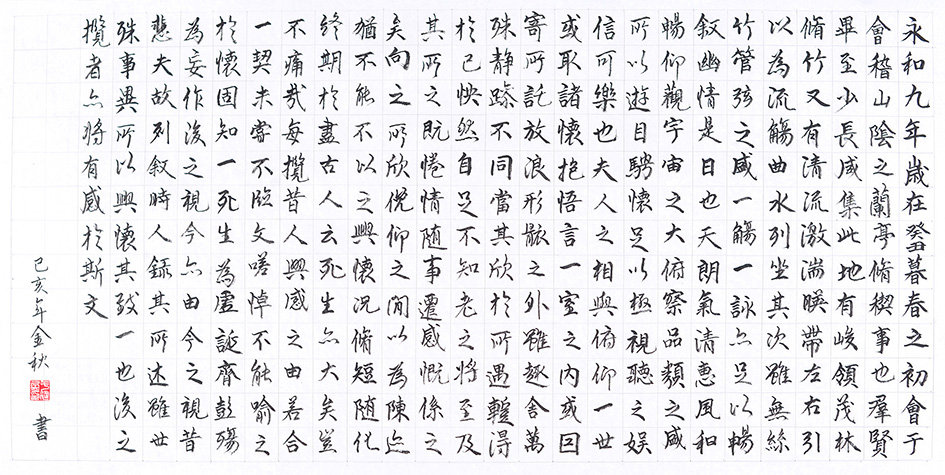 永和九年歲在癸暮春之初會于
會稽山陰之蘭亭脩稧事也羣賢
畢至少長咸集此地有峻領茂林
脩竹又有清流激湍暎帶左右引
以為流觴曲水列坐其次雖無絲
竹管弦之盛一觴一詠亦足以暢
敘幽情是日也天朗氣清惠風和
暢仰觀宇宙之大俯察品類之盛
所以遊目騁懷足以極視聽之娛
信可樂也夫人之相與俯仰一世
或取諸懷抱悟言一室之內或因
寄所託放浪形骸之外雖趣舍萬
殊静躁不同當其欣於所遇蹔得
於己怏然自足不知老之將至及
其所之既惓情随事遷感慨係之
矣向之所欣俛仰之閒以為陳迹
猶不能不以之興懷況脩短随化
終期於盡古人云死生亦大矣豈
不痛哉每攬昔人興感之由若合
一契未嘗不臨文嗟悼不能喻之
於懷固知一死生為虛誕齊彭殤
為妄作後之視今亦由今之視昔
悲夫故列敘時人錄其所述雖世
殊事異所以興懷其致一也後之
攬者亦將有感於斯文
己亥年金秋 書